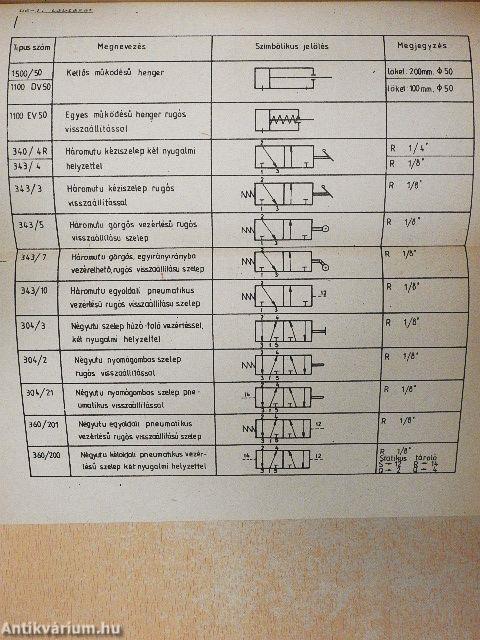 Típus szám Megnevezés Szimbólikus jelölés Megjegyzés
1500/50 Kettős működésű henger löket. 200mm. Φ50
1100 DV50 löket 100mm. Φ50
1100 EV50 Egyes működésű henger rugós
visszaállítással
340/4R Háromutu kéziszelep két nyugalmi R 1/4"
343/4 helyzettel R 1/8"
343/3 Háromutu kéziszelep rugós R 1/8"
visszaállítással
343/5 Háromutu görgős vezérlésű rugós R 1/8"
visszaállítású szelep
343/7 Háromutu görgős, egyirányirányba R 1/8"
vezérelhető, rugós visszaállítású szelep
343/10 Háromutu egyoldali pneumatikus R 1/8"
vezérlésű rugós visszaállítású szelep
304/3 Négyutu szelep húzó-toló vezérléssel, R 1/8"
két nyugalmi helyzettel
304/2 Négyutu nyomógombos szelep R 1/8"
rugós visszaállítással
304/21 Négyutu nyomógombos szelep pne- R 1/8"
umatikus visszaállítással
360/201 Négyutu egyoldali pneumatikus R 1/8"
vezérlésű rugós visszaállítású szelep
360/200 Négyutu kétoldali pneumatikus vezér- R 1/8"
lésű szelep két nyugalmi helyzettel Statikus tároló
S → 12 R → 14
Q → 2 Q → 4
Antikvárium.hu